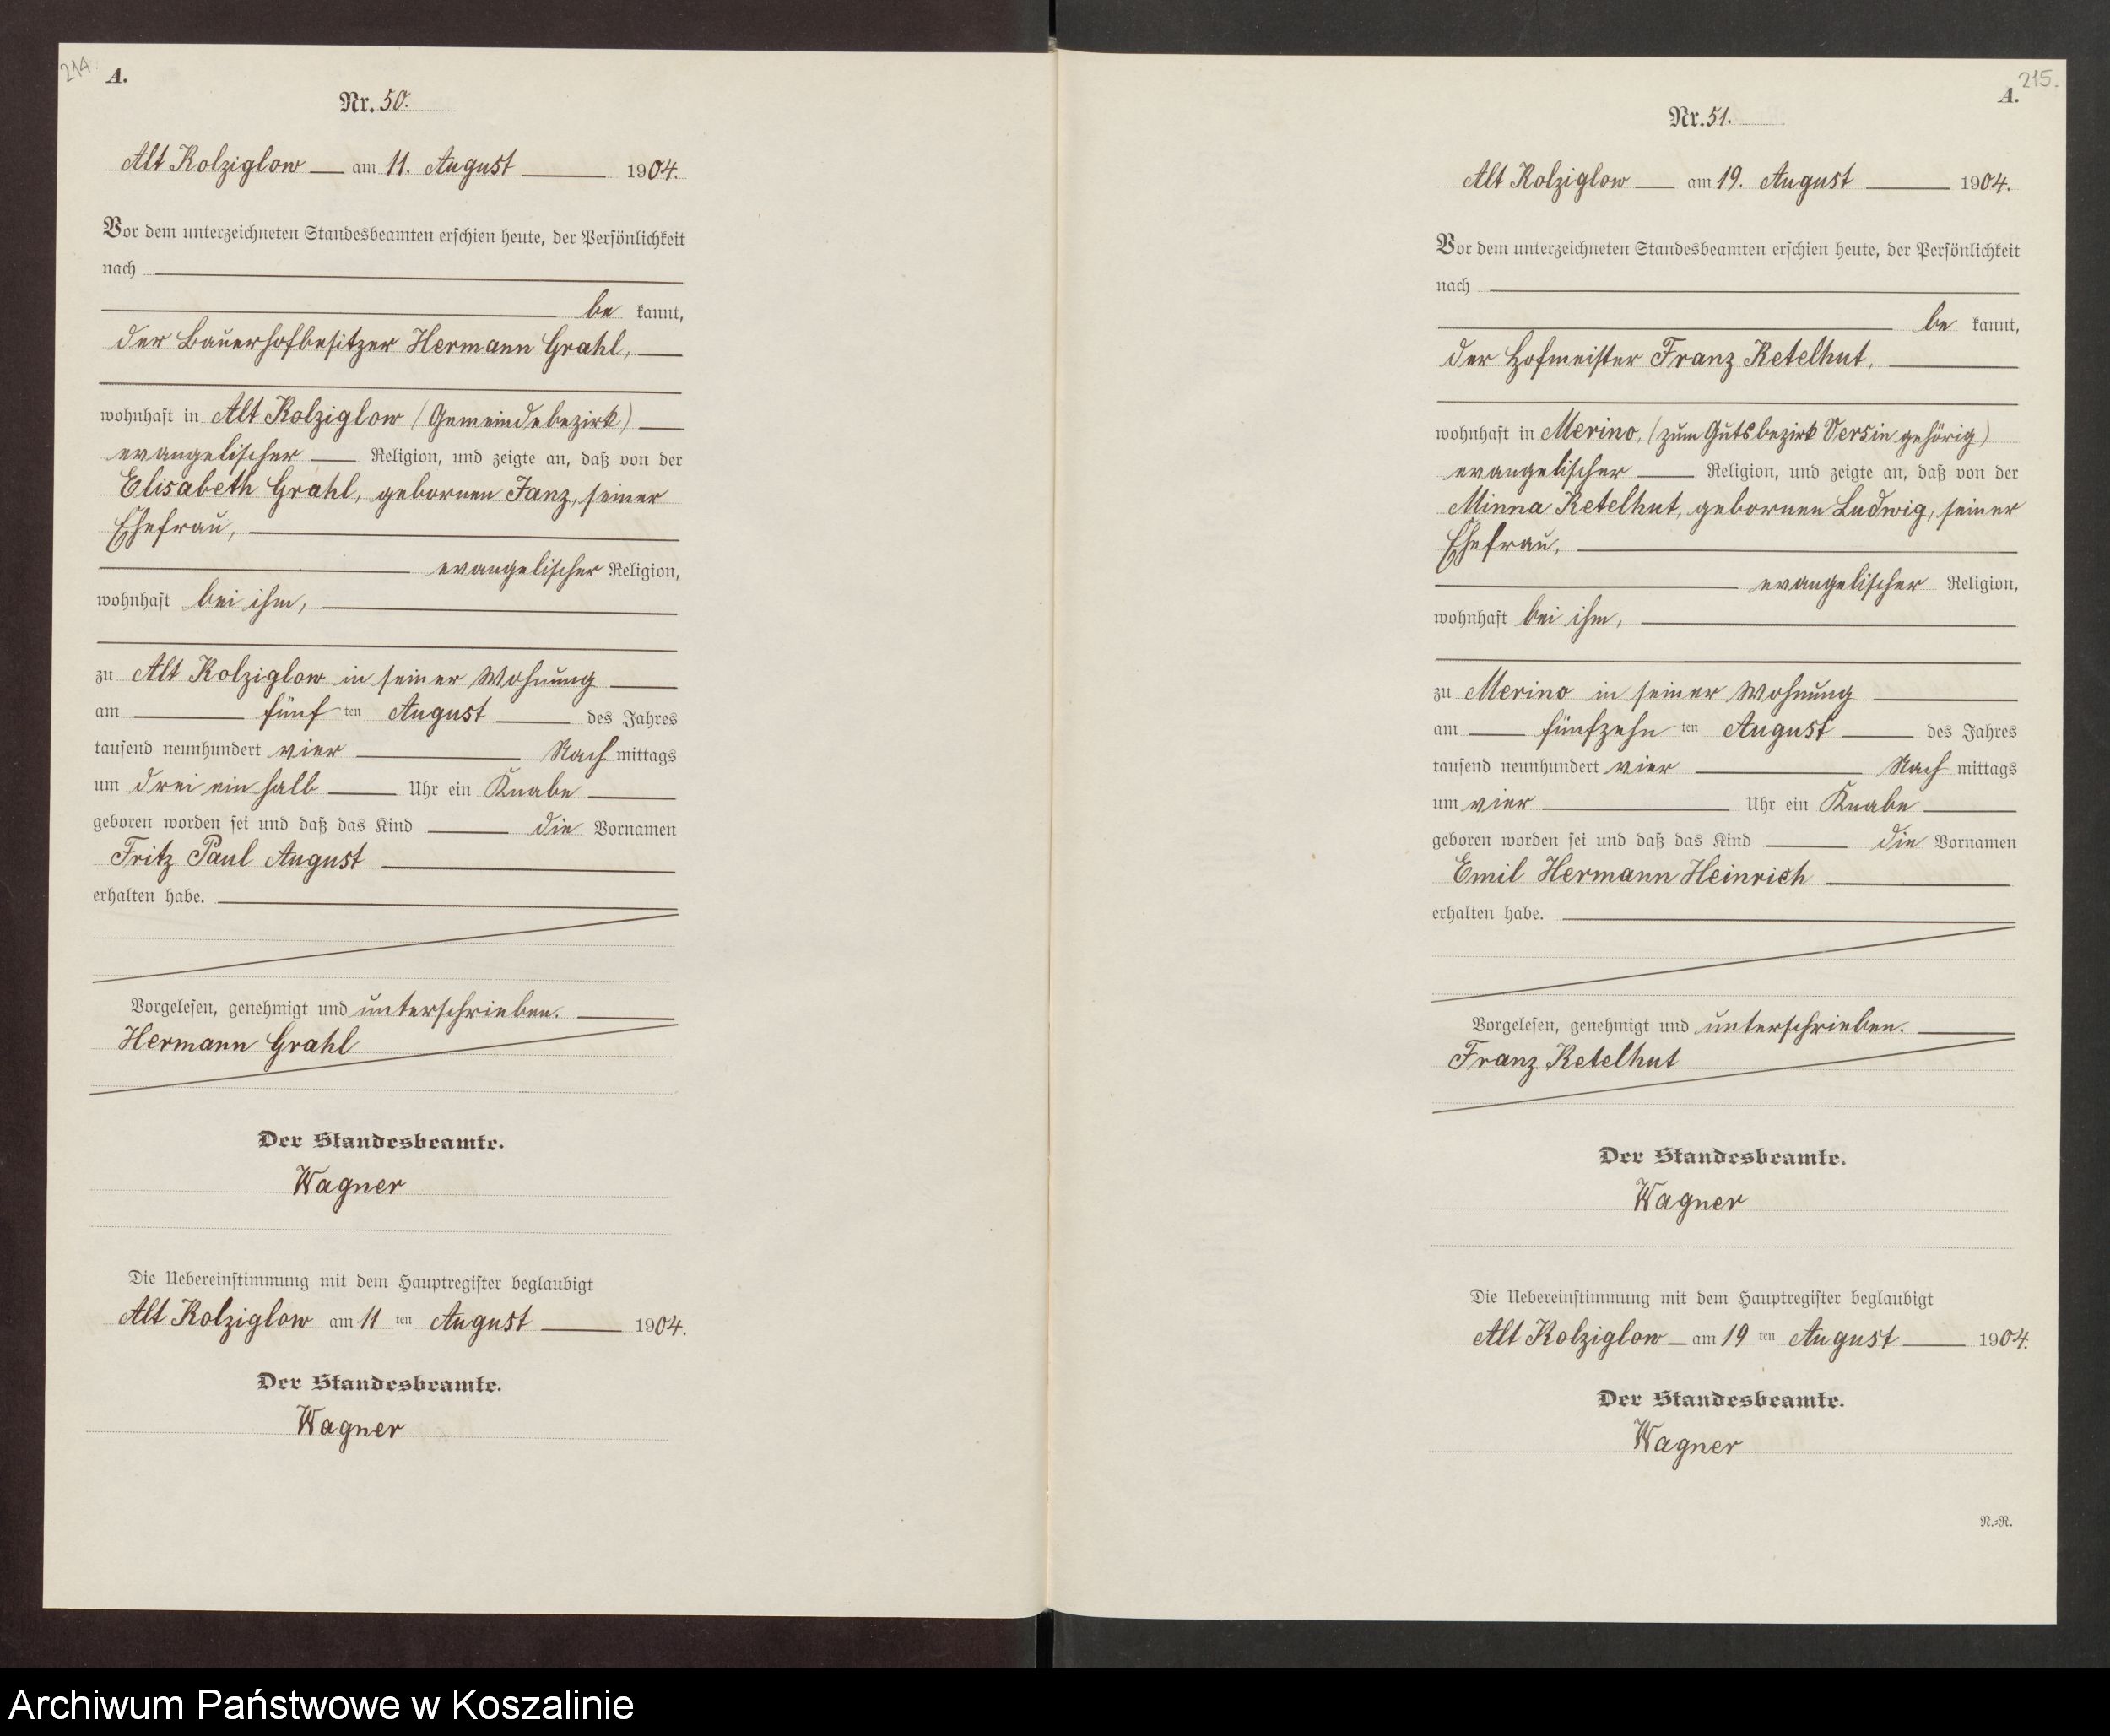 214.
A.
Nr. 50.
Alt Kolziglow am 11. August 1904.
Vor dem unterzeichneten Standesbeamten erschien heute, der Persönlichkeit
nach
be kannt,
der Bauerhofbesitzer Hermann Grahl,
wohnhaft in Alt Kolziglow (Gemeindebezirk)
evangelischer Religion, und zeigte an, daß von der
Elisabeth Grahl, gebornen Janz, seiner
Ehefrau,
evangelischer Religion,
wohnhaft bei ihm,
zu Alt Kolziglow in seiner Wohnung
am fünf ten August des Jahres
tausend neunhundert vier Nach mittags
um drei ein halb Uhr ein Knabe
geboren worden sei und daß das Kind die Vornamen
Fritz Paul August
erhalten habe.
Vorgelesen, genehmigt und unterschrieben.
Hermann Grahl
Der Standesbeamte.
Wagner
Die Uebereinstimmung mit dem Hauptregister beglaubigt
Alt Kolziglow am 11 ten August 1904.
Der Standesbeamte.
Wagner
215.
A.
Nr. 51.
Alt Kolziglow am 19. August 1904.
Vor dem unterzeichneten Standesbeamten erschien heute, der Persönlichkeit
nach
be kannt,
der Hofmeister Franz Retelhut,
wohnhaft in Merino, (zum Gutsbezirk Versin gehörig)
evangelischer Religion, und zeigte an, daß von der
Minna Retelhut, gebornen Ludwig, seiner
Ehefrau,
evangelischer Religion,
wohnhaft bei ihm,
zu Merino in seiner Wohnung
am fünfzehn ten August des Jahres
tausend neunhundert vier Nach mittags
um vier Uhr ein Knabe
geboren worden sei und daß das Kind die Vornamen
Emil Hermann Heinrich
erhalten habe.
Vorgelesen, genehmigt und unterschrieben.
Franz Retelhut
Der Standesbeamte.
Wagner
Die Uebereinstimmung mit dem Hauptregister beglaubigt
Alt Kolziglow am 19 ten August 1904.
Der Standesbeamte.
Wagner
N.-R.
Archiwum Państwowe w Koszalinie